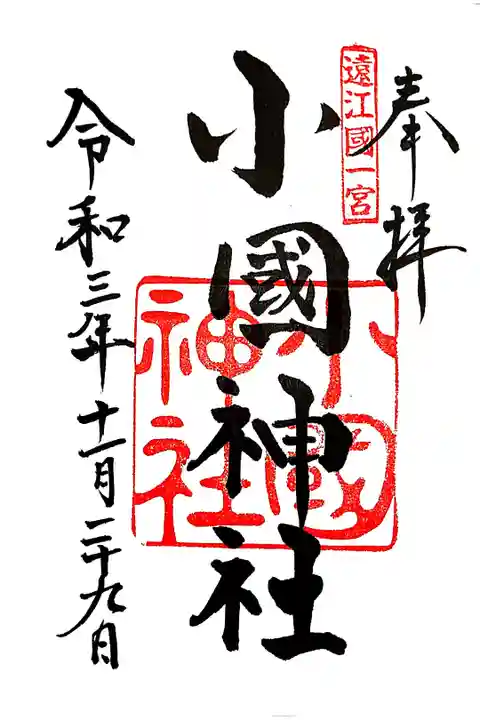 奉拝
遠江國一宮
小國神社
小國
神社
令和三年十一月二十九日